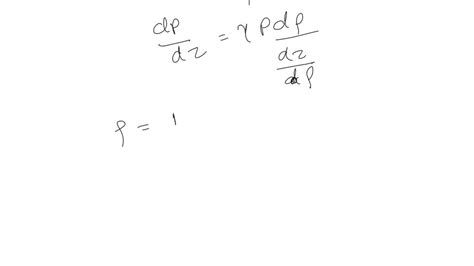 dp/dz = γ p dρ/dz/dρ
ρ = 1